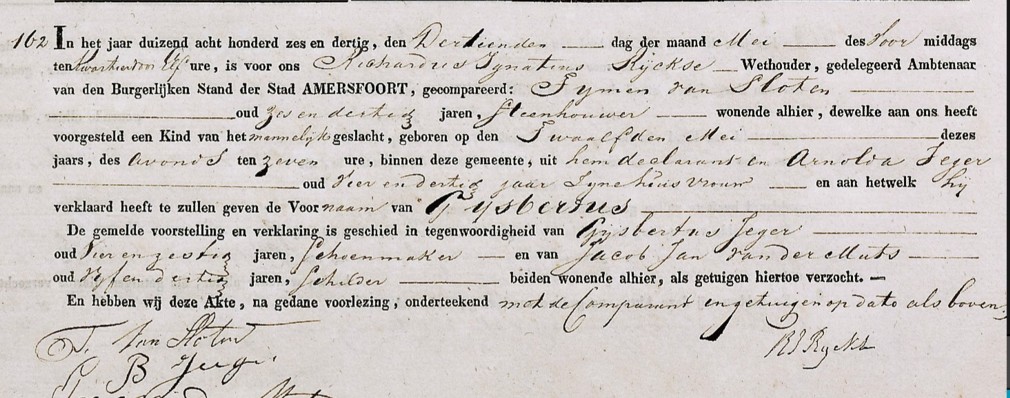 162 In het jaar duizend acht honderd zes en dertig, den Dertienden dag der maand Mei des Voor middags
ten Kwartier voor Elf ure, is voor ons Richardus Ignatius Rijckse Wethouder, gedelegeerd Ambtenaar
van den Burgerlijken Stand der Stad AMERSFOORT, gecompareerd: Tymen van Sloten
oud Zes en dertig jaren, Steenhouwer wonende alhier, dewelke aan ons heeft
voorgesteld een Kind van het mannelijk geslacht, geboren op den Twaalfden Mei dezes
jaars, des avonds ten zeven ure, binnen deze gemeente, uit hem declarant en Arnolda Jeger
oud Vier en dertig jaar Zyne huisvrouw en aan hetwelk hij
verklaard heeft te zullen geven de Voornaam van Gysbertus
De gemelde voorstelling en verklaring is geschied in tegenwoordigheid van Gijsbertus Jeger
oud Vier en zestig jaren, Schoenmaker en van Jacob Jan van der Muts
oud Vyf en dertig jaren, Schilder beiden wonende alhier, als getuigen hiertoe verzocht.—
En hebben wij deze Akte, na gedane voorlezing, onderteekend met de Comparant en getuigen op dato als boven.
T. van Sloten
R I Ryckse
G B Jeger